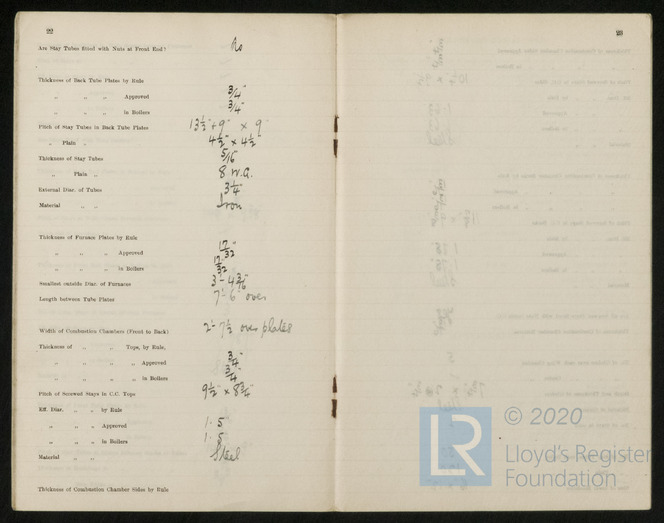 22
Are Stay Tubes fitted with Nuts at Front End? No
Thickness of Back Tube Plates by Rule
" " " Approved 3/4"
" " " in Boilers 3/4"
Pitch of Stay Tubes in Back Tube Plates 13 1/2" + 9" × 9"
" Plain " 4 1/2" × 4 1/2"
Thickness of Stay Tubes 5/16"
" Plain " 8 W.G.
External Diar. of Tubes 3 1/4"
Material " " Iron
Thickness of Furnace Plates by Rule
" " " Approved 17/32"
" " " in Boilers 17/32
Smallest outside Diar. of Furnaces
Length between Tube Plates 7'-6" over
Width of Combustion Chambers (Front to Back) 2'-7 1/2 over plates
Thickness of " " Tops, by Rule,
" " " " Approved 3/4"
" " " " in Boilers 3/4"
Pitch of Screwed Stays in C.C. Tops 9 1/2" × 8 3/4"
Eff. Diar. " " by Rule
" " " Approved 1.5
" " " in Boilers 1.5
Material " " Steel
Thickness of Combustion Chamber Sides by Rule
23
© 2020
LR
Lloyd's Register
Foundation